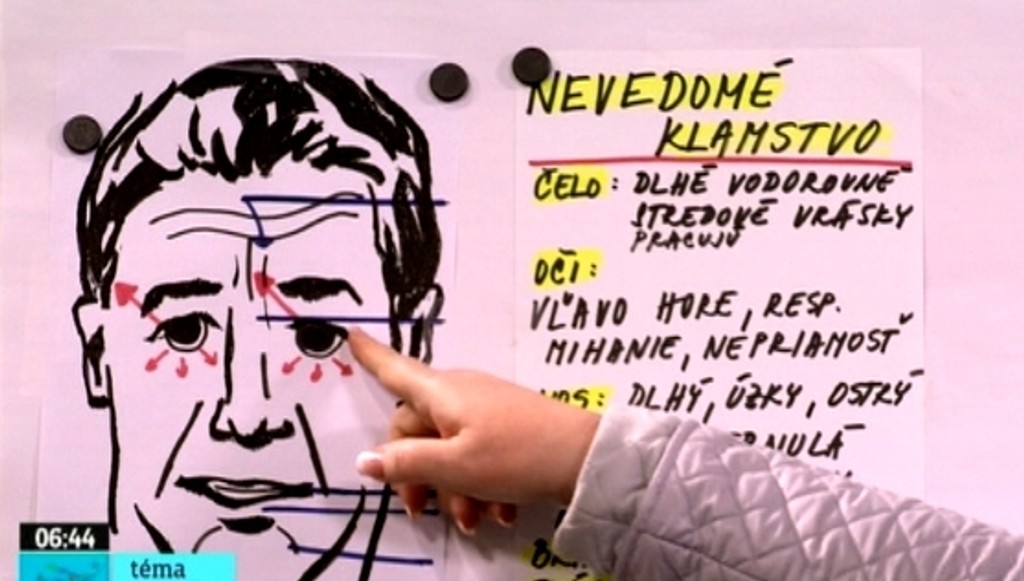 NEVEDOMÉ
KLAMSTVO
ČELO: DLHÉ VODOROVNÉ
STREDOVÉ VRÁSKY
PRACUJÚ
OČI:
VĽAVO HORE, RESP.
MIHANIE, NEPRIAMOSŤ
DLHÝ, ÚZKY, OSTRÝ
06:44
téma